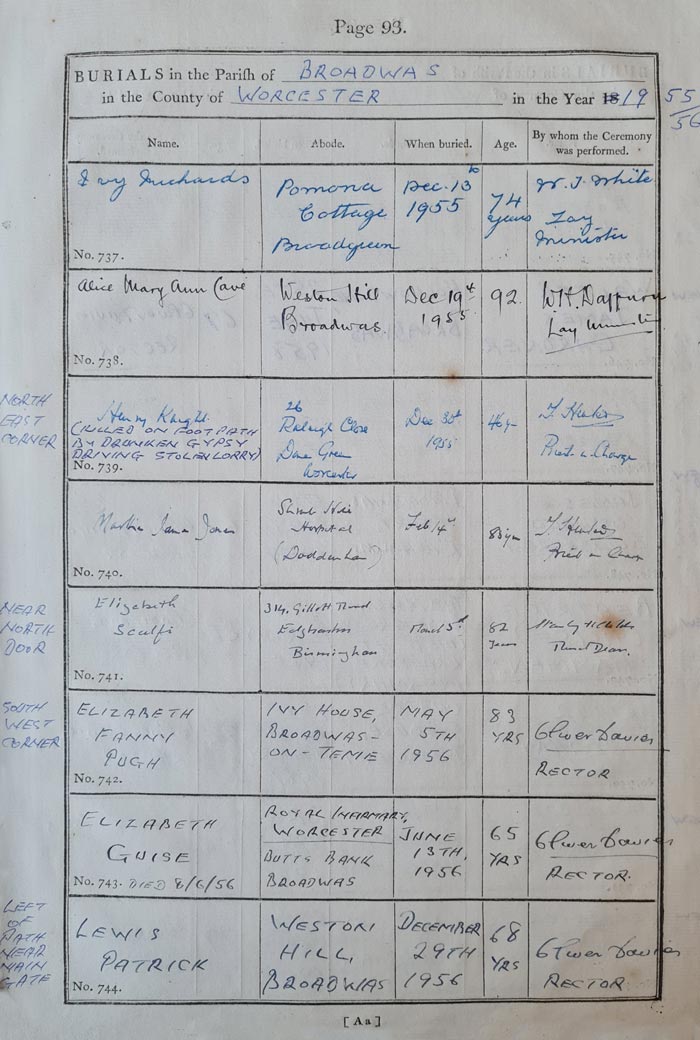 Page 93.
BURIALS in the Parish of BROADWAS
in the County of WORCESTER in the Year 1819 55/56
Name. Abode. When buried. Age. By whom the Ceremony was performed.
Ivy Richards
Pomona
Cottage
Broadgreen
Dec. 13th
1955
74
years
W. J. White
Lay
Minister
No. 737.
Alice Mary Ann Cave
Weston Hill
Broadwas
Dec 19th
1955
92.
Lay Minister
No. 738.
NORTH
EAST
CORNER
Henry Knight
(KILLED ON FOOTPATH
BY DRUNKEN GYPSY
DRIVING STOLEN LORRY)
26
Close
Green
Worcester
Dec 30th
1955
46 yr
Priest in Charge
No. 739.
James Jones
Hospital
(Doddenham)
Feb 14th
Priest in Charge
No. 740.
NEAR
NORTH
DOOR
Elizabeth
Scalfi
314, Gillott Road
Edgbaston
Birmingham
March 5th
82
Years
Rural Dean.
No. 741.
SOUTH
WEST
CORNER
ELIZABETH
FANNY
PUGH
IVY HOUSE,
BROADWAS-
ON-TEME
MAY
5TH
1956
83
YRS
Oliver Davies
RECTOR
No. 742.
ELIZABETH
GUISE
ROYAL INFIRMARY,
WORCESTER
BUTTS BANK
BROADWAS
JUNE
13TH,
1956
65
YRS
Oliver Davies
RECTOR.
No. 743. DIED 8/6/56
LEFT
OF
PATH
NEAR
MAIN
GATE
LEWIS
PATRICK
WESTON
HILL,
BROADWAS
DECEMBER
29TH
1956
68
YRS
Oliver Davies
RECTOR
No. 744.
[Aa]